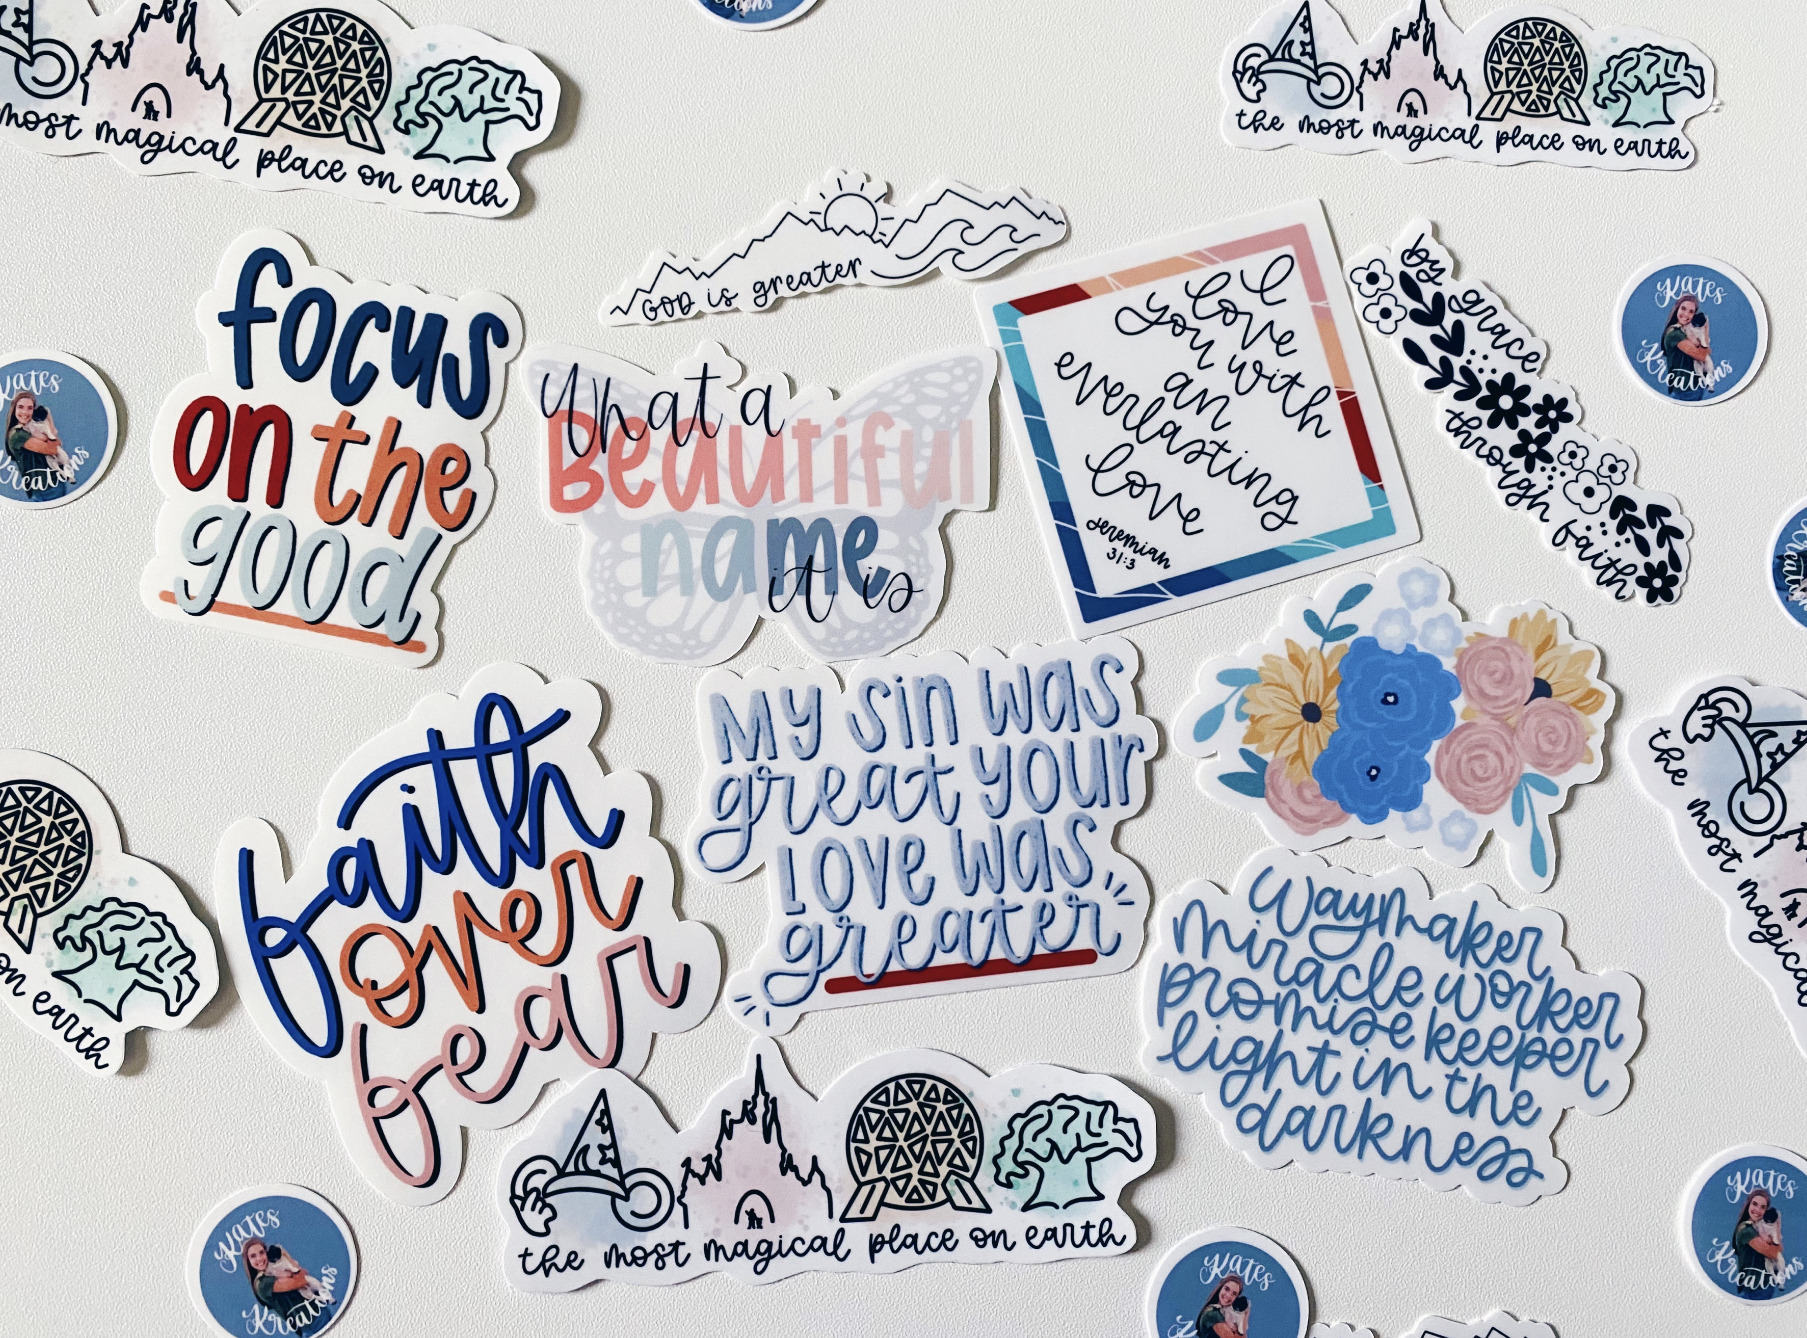 Kreations
most magical place on earth
the most magical place on earth
GOD is greater
focus
on the
good
What a
Beautiful
name
it is
I
love
you with
an
everlasting
love
Jeremiah
31:3
by grace
through faith
Kates
Kreations
Kates
Kreations
Kreations
faith
over
fear
My sin was
great your
Love was
greater
Waymaker
miracle worker
promise keeper
light in the
darkness
on earth
the most magical
the most magical place on earth
Kates
Kreations
Kates
Kates
Kreations